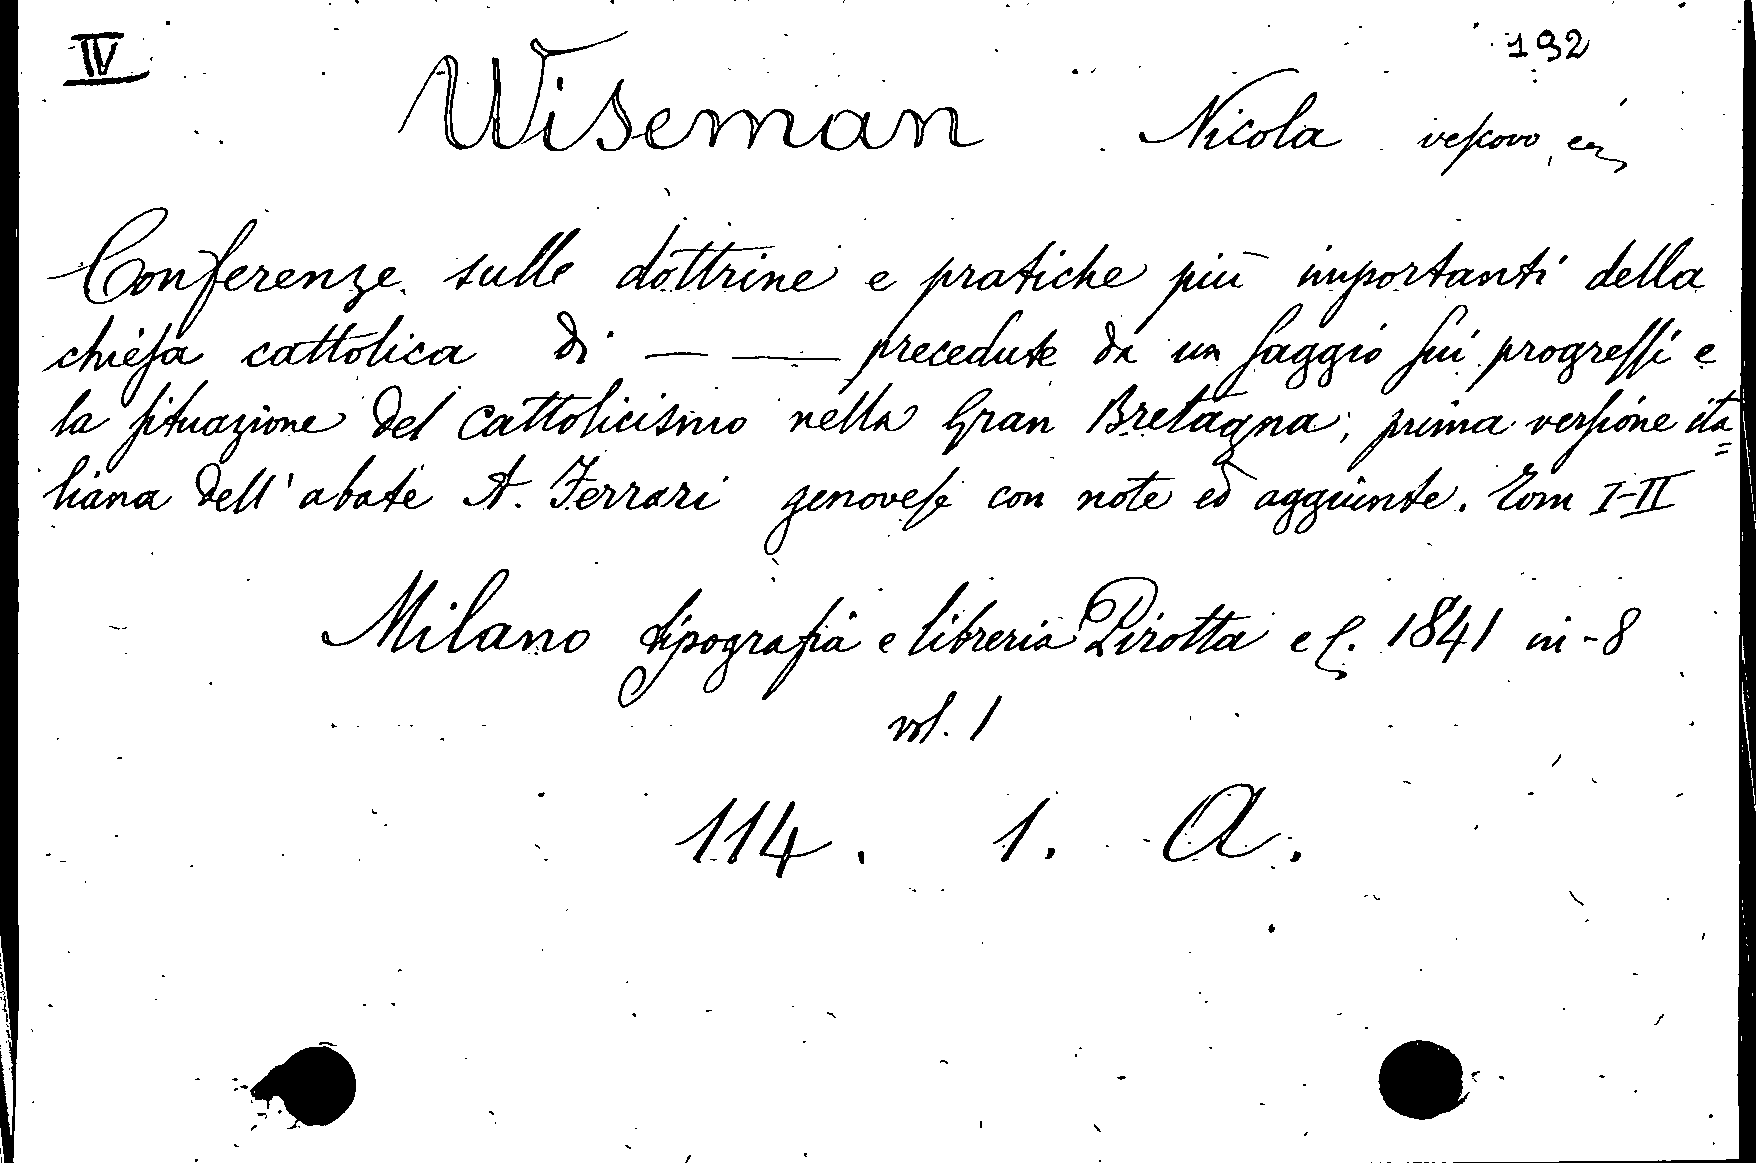 IV 192
Wiseman Nicola vescovo, ec
Conferenze sulle dottrine e pratiche più importanti della
chiesa cattolica di — — precedute da un saggio sui progressi e
la situazione del cattolicismo nella Gran Bretagna; prima versione ita=
liana dell'abate A. Ferrari genovese con note ed aggiunte. Tom I-II
Milano tipografia e libreria Pirotta e C. 1841 in-8
vol. 1
114. 1. A.